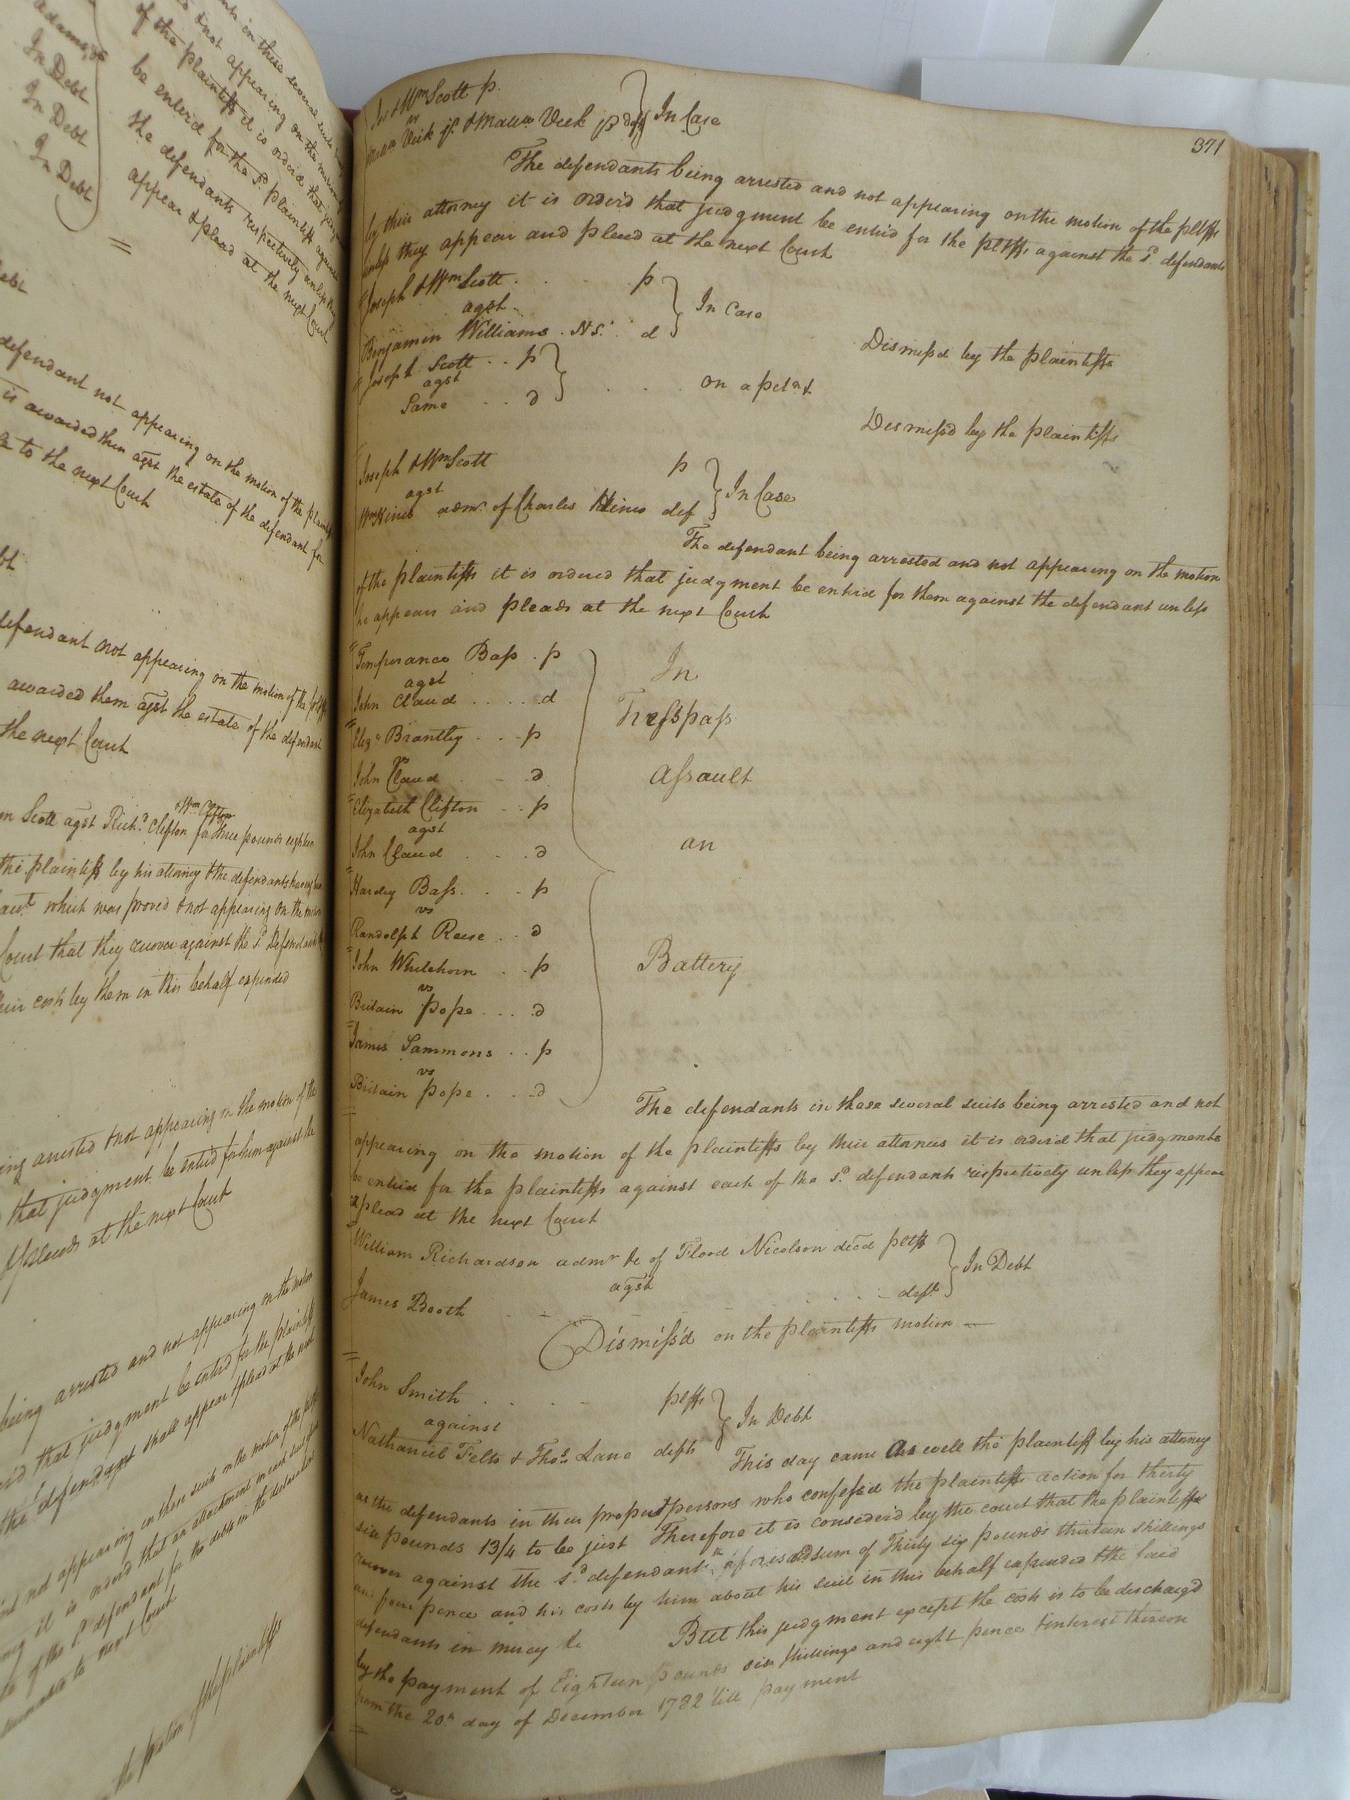 adams
In Debt
In Debt
In Debt
of the plaintiffs it is orderd that
be enterd for the sd. plaintiff against
the defendants respectively unless they
appear & plead at the next Court
defendant not appearing on the motion of the
is awarded them agst the estate of the defendant for
to the next Court
defendant not appearing on the motion of the
awarded them agst the estate of the defendant
the next Court
& Wm Clifton
Scott agst Richd. Clifton for three pounds eighteen
the plaintiff by his attorney & the defendants having
which was proved & not appearing on the
Court that they recover against the sd. Defendants
costs by them in this behalf expended
arrested & not appearing on the motion of the
that judgment be enterd for him against the
& pleads at the next Court
being arrested and not appearing on the motion
that judgment be enterd for the plaintiff
the defendant shall appear & plead at the next
not appearing in these suits on the motion of the
it is orderd that an attachment
of the sd. defendant for the debts in the
to next Court
the motion of the plaintiffs
371
& Wm Scott p.
vs
Vick jr. & Vick p defs } In Case
The defendants being arrested and not appearing on the motion of the pltffs
by their attorney it is orderd that judgment be enterd for the pltffs against the sd. defendants
unless they appear and plead at the next Court
Joseph & Wm Scott . . . . p
agst } In Case
Benjamin Williams . NS. . d
Dismissd by the plaintiffs
Joseph Scott . . p
agst } . . . on a
Same . . d
Dismissd by the plaintiffs
Joseph & Wm Scott p
agst } In Case
Wm Hines admr. of Charles Hines def
The defendant being arrested and not appearing on the motion
of the plaintiffs it is orderd that judgment be enterd for them against the defendant unless
he appears and pleads at the next Court
Temperance Bass . p
agst
John Claud . . . . . d
Elizh. Brantley . . . p
vs
John Claud . - . d
Elizabeth Clifton . . . p
agst
John Claud . . . d
Hardy Bass . . . p
vs
Randolph Reese . . d
John Whitehorn . . p
vs
Britain Pope . . . . d
James Sammons . . p
vs
Britain Pope . . . d
In
Tresspass
Assault
an
Battery
The defendants in these several suits being arrested and not
appearing on the motion of the plaintiffs by their attornies it is orderd that judgments
be enterd for the plaintiffs against each of the sd. defendants respectively unless they appear
& plead at the next Court
William Richardson admr &c of Flood Nicolson decd pltff
agst } In Debt
James Booth . . . . . deft.
Dismiss'd on the plaintiffs motion —
John Smith . . . . . pltff
against } In Debt
Nathaniel Felts & Thos. Lane defts
This day came as well the plaintiff by his attorney
as the defendants in their proper persons who confess'd the plaintiffs action for thirty
six pounds 13/4 to be just Therefore it is considerd by the court that the plaintiff
recover against the sd. defendants the aforesaid sum of Thirty six pounds thirteen shillings
and four pence and his costs by him about his suit in this behalf expended & the said
defendants in mercy &c But this judgment except the costs is to be dischargd
by the payment of Eighteen pounds six shillings and eight pence & interest thereon
from the 20th. day of December 1782 till payment